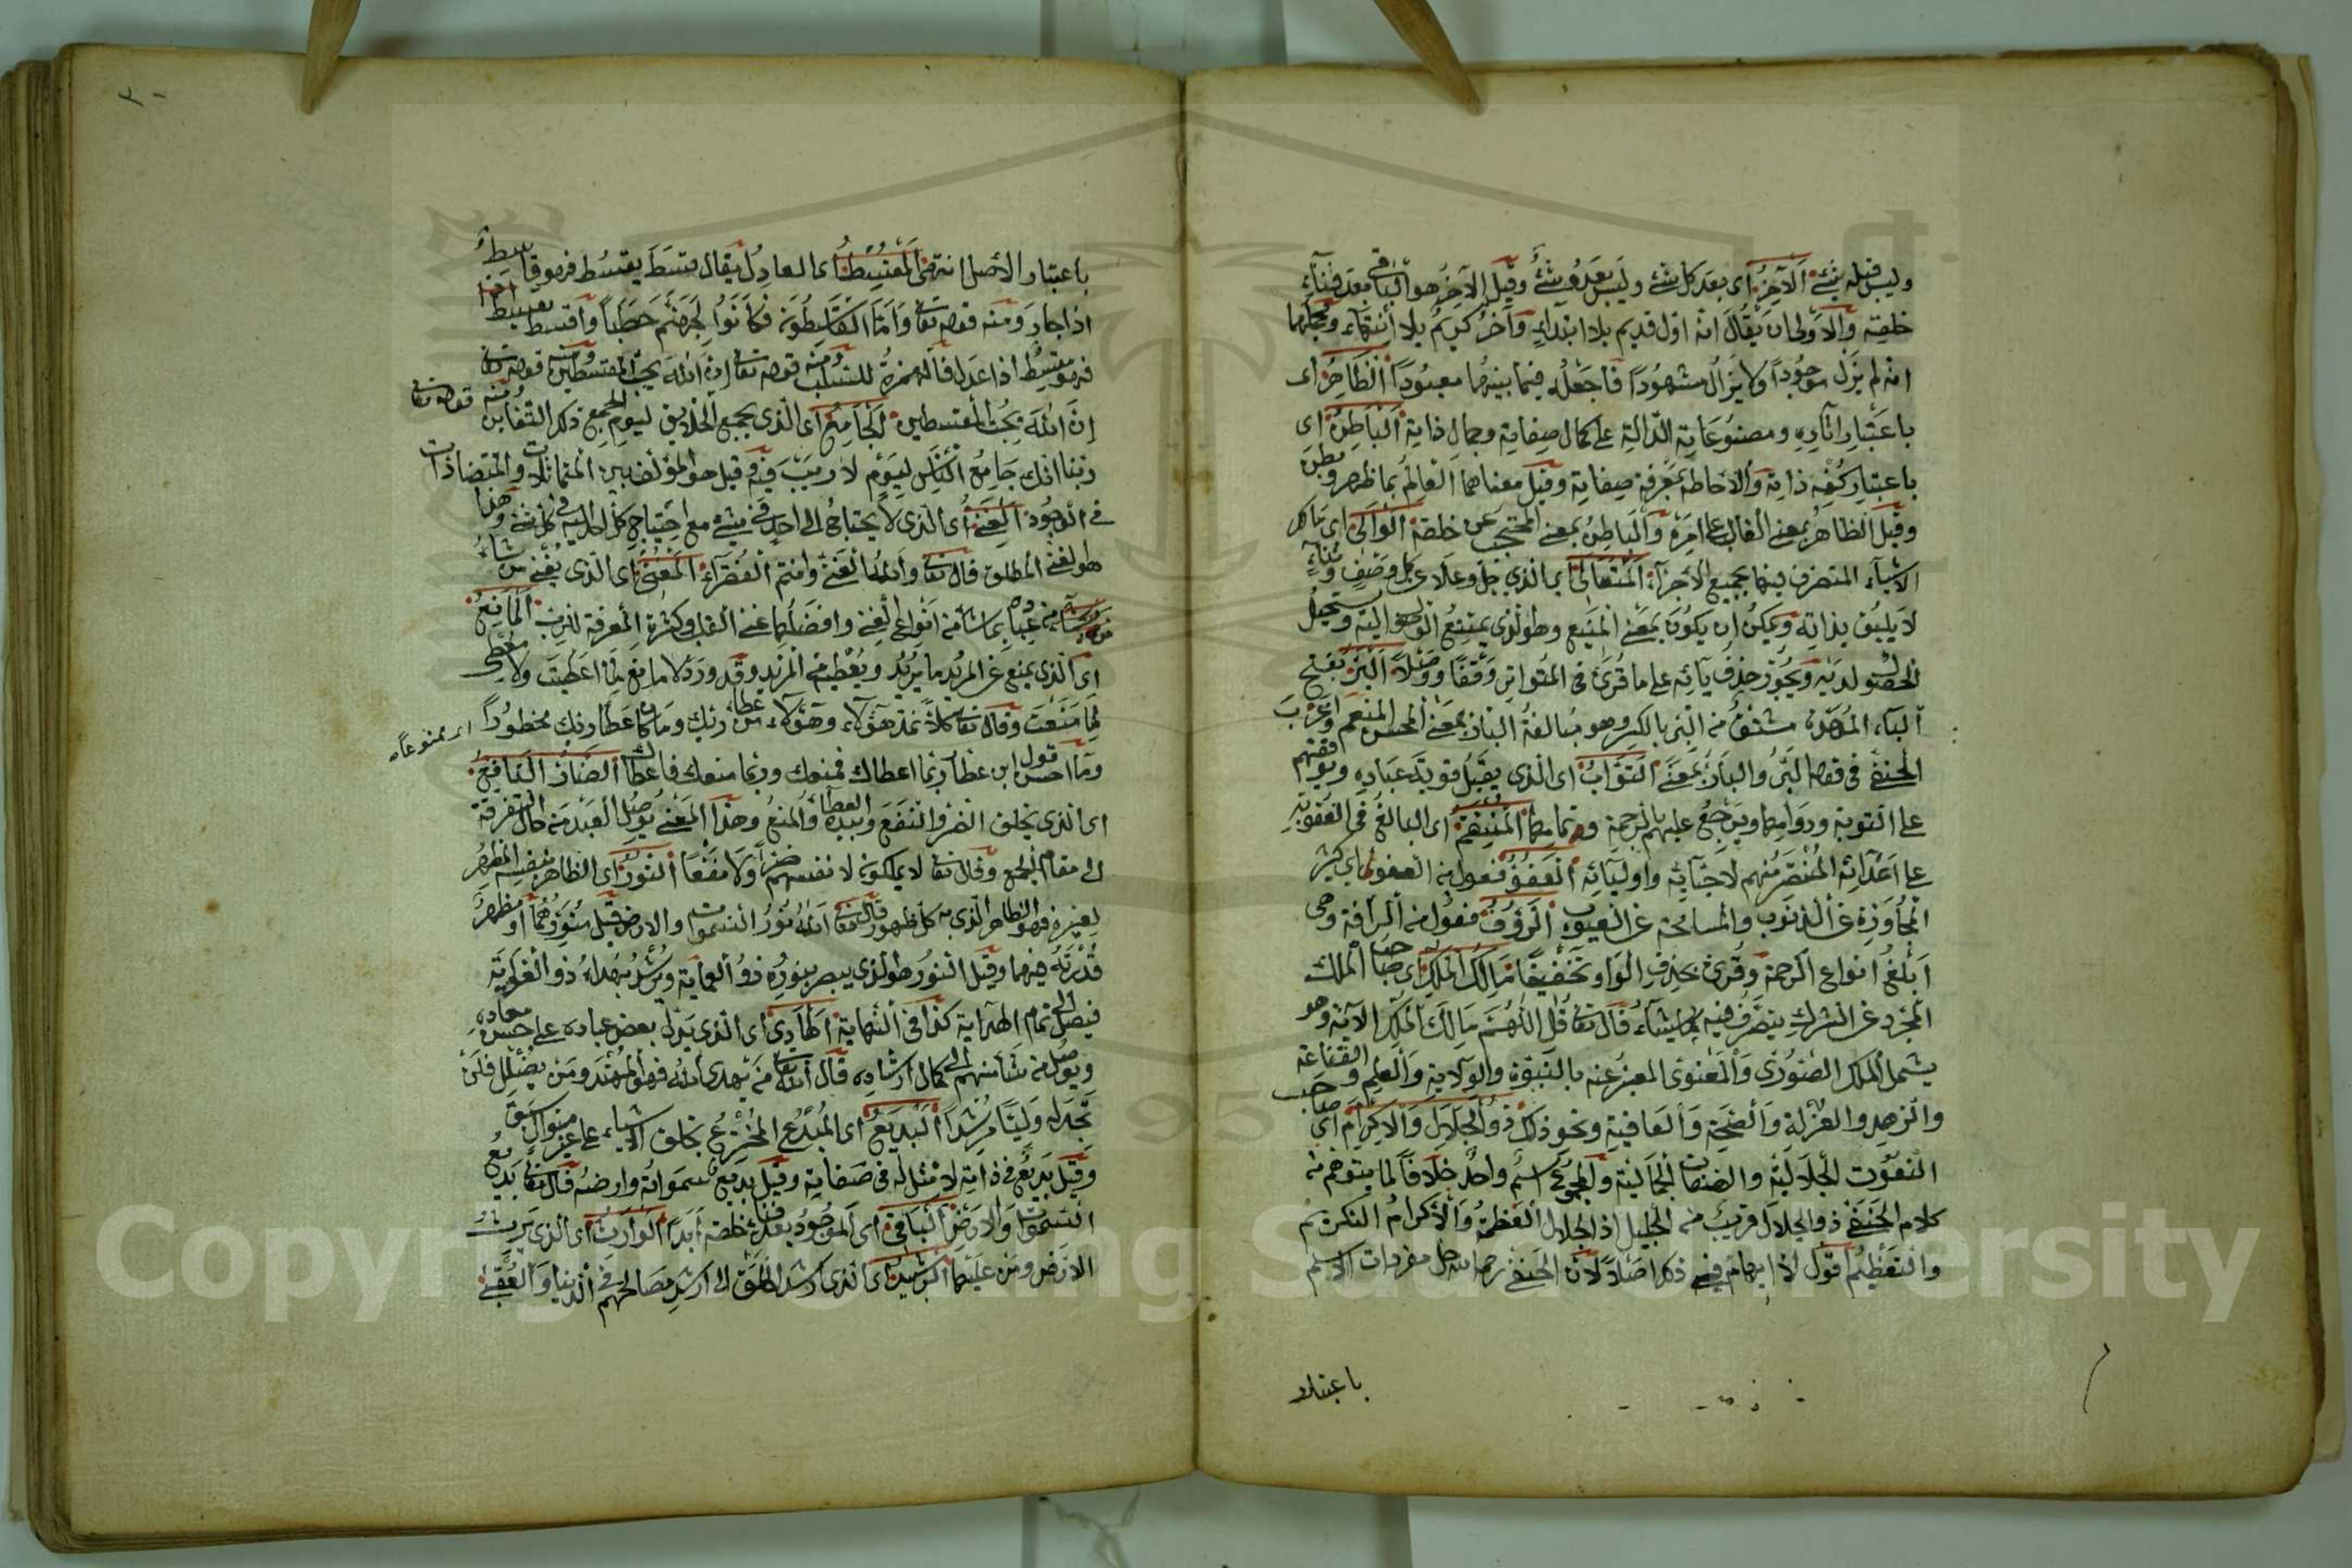 وليس قبله شئ الآخر اى بعد كل شئ وليس بعده شئ وقيل الآخر هو الباقى بعد فناء
خلقه والاولى ان يقال انه اول قديم بلا ابتداء وآخر كريم بلا انتهاء ومجملهما
انه لم يزل موجودا ولا يزال مشهودا فاجعله فيما بينهما معبودا الظاهر اى
باعتبار آثاره ومصنوعاته الدالة على كمال صفاته وجمال ذاته الباطن اى
باعتبار كنه ذاته والاحاطة بمعرفة صفاته وقيل معناهما العالم بما ظهر وبطن
وقيل الظاهر بمعنى الغالب على امره والباطن بمعنى المحتجب عن خلقه الوالى اى مالك
الاشياء المتصرف فيها بجميع الاجزاء المتعالى اى الذى جل وعلا عن كل وصف وثناء
لا يليق بذاته ويمكن ان يكون بمعنى المنيع وهو الذى يمتنع الوصول اليه ويستحيل
الحصول لديه ويجوز حذف يائه على ما قرئ فى المتواتر وقفا ووصلا البر بفتح
الباء الموحدة مشتق من البر بالكسر وهو مبالغة البار بمعنى المحسن المنعم واغرب
الحنفى فى قوله البر والبار بمعنى التواب اى الذى يقبل توبة عباده ويوفقهم
على التوبة ودوامها ويرجع عليهم بالرحمة وتمامها المنتقم اى البالغ فى العقوبة
على اعدائه المنتصر منهم لاحبائه واوليائه العفو فعول من العفو اى كثير
المجاوزة عن الذنوب والمسامحة عن العيوب الرؤوف فعول من الرأفة وهى
ابلغ انواع الرحمة وقرئ بحذف الواو تخفيفا مالك الملك اى صاحب الملك
المجرد عن الشرك يتصرف فيه كما يشاء قال تعا قل اللهم مالك الملك الآية وهو
يشمل الملك الصورى والمعنوى المعبر عنه بالنبوة والولاية والعلم والقناعة
والزهد والعزلة والصحة والعافية ونحو ذلك ذو الجلال والاكرام اى صاحب
النعوت الجلالية والصفات الجمالية والمجموع اسم واحد خلافا لما يتوهم من
كلام الحنفى ذو الجلال قريب من الجليل اذ الجلال العظمة والاكرام التكريم
والتعظيم اقول لا ايهام فيه ذكر اصلا لان الحنفى رحمه الله حل مفردات الاسم
باعتبار
باعتبار الاصل انتهى المقسط اى العادل يقال قسط يقسط فهو قاسط
اذا جار ومنه قوله تعا واما القاسطون فكانوا لجهنم حطبا واقسط يقسط
فهو مقسط اذا عدل فالهمزة للسلب ومنه قوله تعا ان الله يحب المقسطين
ان الله يحب المقسطين الجامع اى الذى يجمع الخلايق ليوم الجمع ذلك التغابن ومنه قوله تعا
ربنا انك جامع الناس ليوم لا ريب فيه وقيل هو المؤلف بين المتماثلات والمتضادات
فى الوجود الغنى اى الذى لا يحتاج الى احد فى شئ مع احتياج كل احد اليه فى كل شئ وهذا
هو الغنى المطلق قال تعا والله الغنى وانتم الفقراء المغنى اى الذى يغنى من شاء
من عباده بما شاء من انواع الغنى وافضلها غنى القلب وكثرة المعرفة للرب المانع
اى الذى يمنع عن المريد ما يريد ويعطيه المزيد وقد ورد لا مانع لما اعطيت ولا معطى
لما منعت وقال تعا كلا نمد هؤلاء وهؤلاء من عطاء ربك وما كان عطاء ربك محظورا
اى ممنوعا
وما احسن قول ابن عطا ربما اعطاك فمنعك وربما منعك فاعطاك الضار النافع
اى الذى يخلق الضر والنفع وبيده العطاء والمنع وهذا المعنى يوصل العبد من حال التفرقة
الى مقام الجمع وقال تعا لا يملكون لانفسهم ضرا ولا نفعا النور اى الظاهر بنفسه المظهر
لغيره فهو الظاهر الذى به كل ظهور قال تعا الله نور السموات والارض قيل منورهما او مظهر
قدرته فيهما وقيل النور هو الذى يبصر بنوره ذو العماية ويرشد بهداه ذو الغواية
فيصل الى تمام الهداية كذا فى النهاية الهادى اى الذى يدل بعض عباده على حسن معاده
ويوصل من شاء منهم الى كمال ارشاده قال الله تعا من يهدى الله فهو المهتد ومن يضلل فلن
تجد له وليا مرشدا البديع اى المبدع المخترع بخلق الاشياء على غير منوال سبق
وقيل بديع فى ذاته لا مثل له فى صفاته وقيل بديع سمواته وارضه قال تعا بديع
السموات والارض الباقى اى الموجود بعد فناء خلقه ابدا الوارث اى الذى يرث
الارض ومن عليها الرشيد اى الذى ارشد الخلق الى ارشد مصالحهم فى الدنيا والعقبى